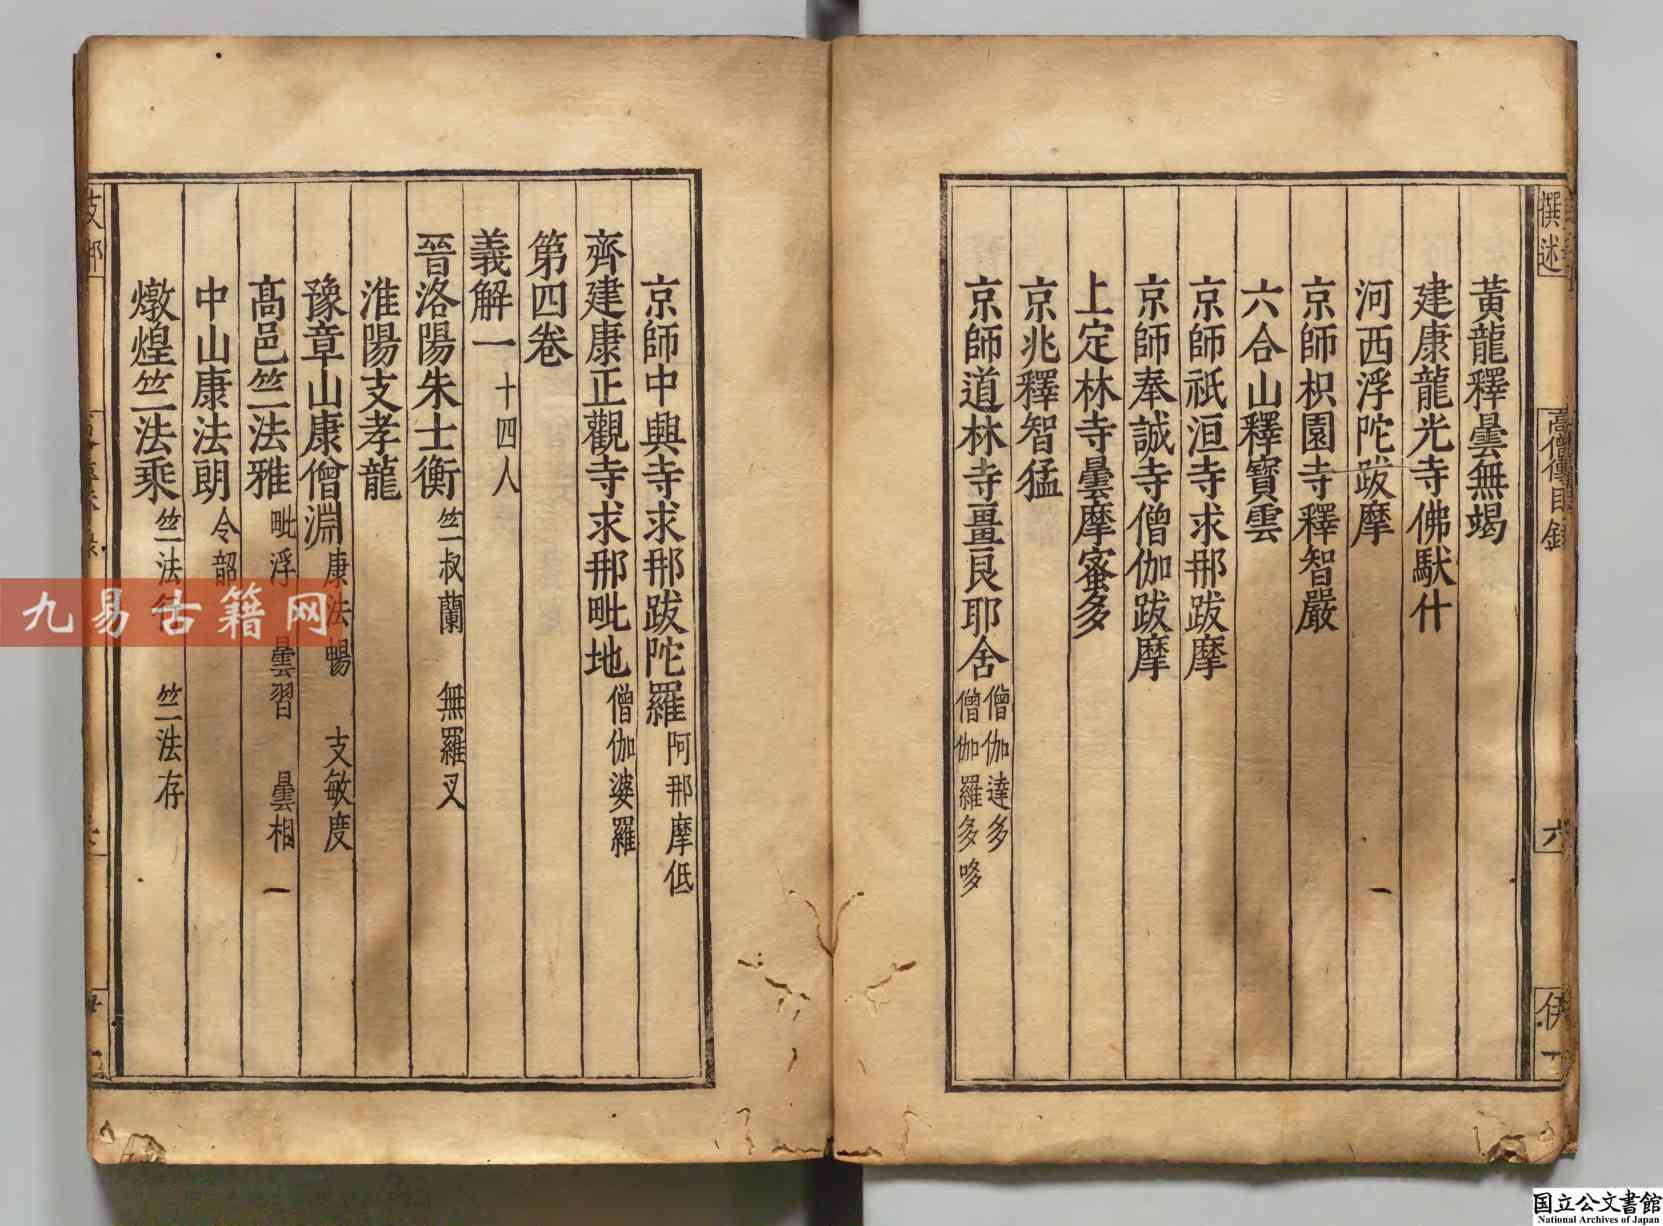 撰述
高僧傳目錄
六
伊一
黃龍釋曇無竭
建康龍光寺佛馱什
河西浮陀跋摩
京師枳園寺釋智嚴
六合山釋寶雲
京師祇洹寺求那跋摩
京師奉誠寺僧伽跋摩
上定林寺曇摩蜜多
京兆釋智猛
京師道林寺畺良耶舍 僧伽達多
僧伽羅多哆
京師中興寺求那跋陀羅 阿那摩低
齊建康正觀寺求那毗地 僧伽婆羅
第四卷
義解一 十四人
晉洛陽朱士衡 竺叔蘭 無羅叉
淮陽支孝龍
豫章山康僧淵 康法暢 支敏度
高邑竺法雅 毗浮 曇習 曇相
中山康法朗 令韶
燉煌竺法乘 竺法 竺法存
九易古籍网
国立公文書館
National Archives of Japan